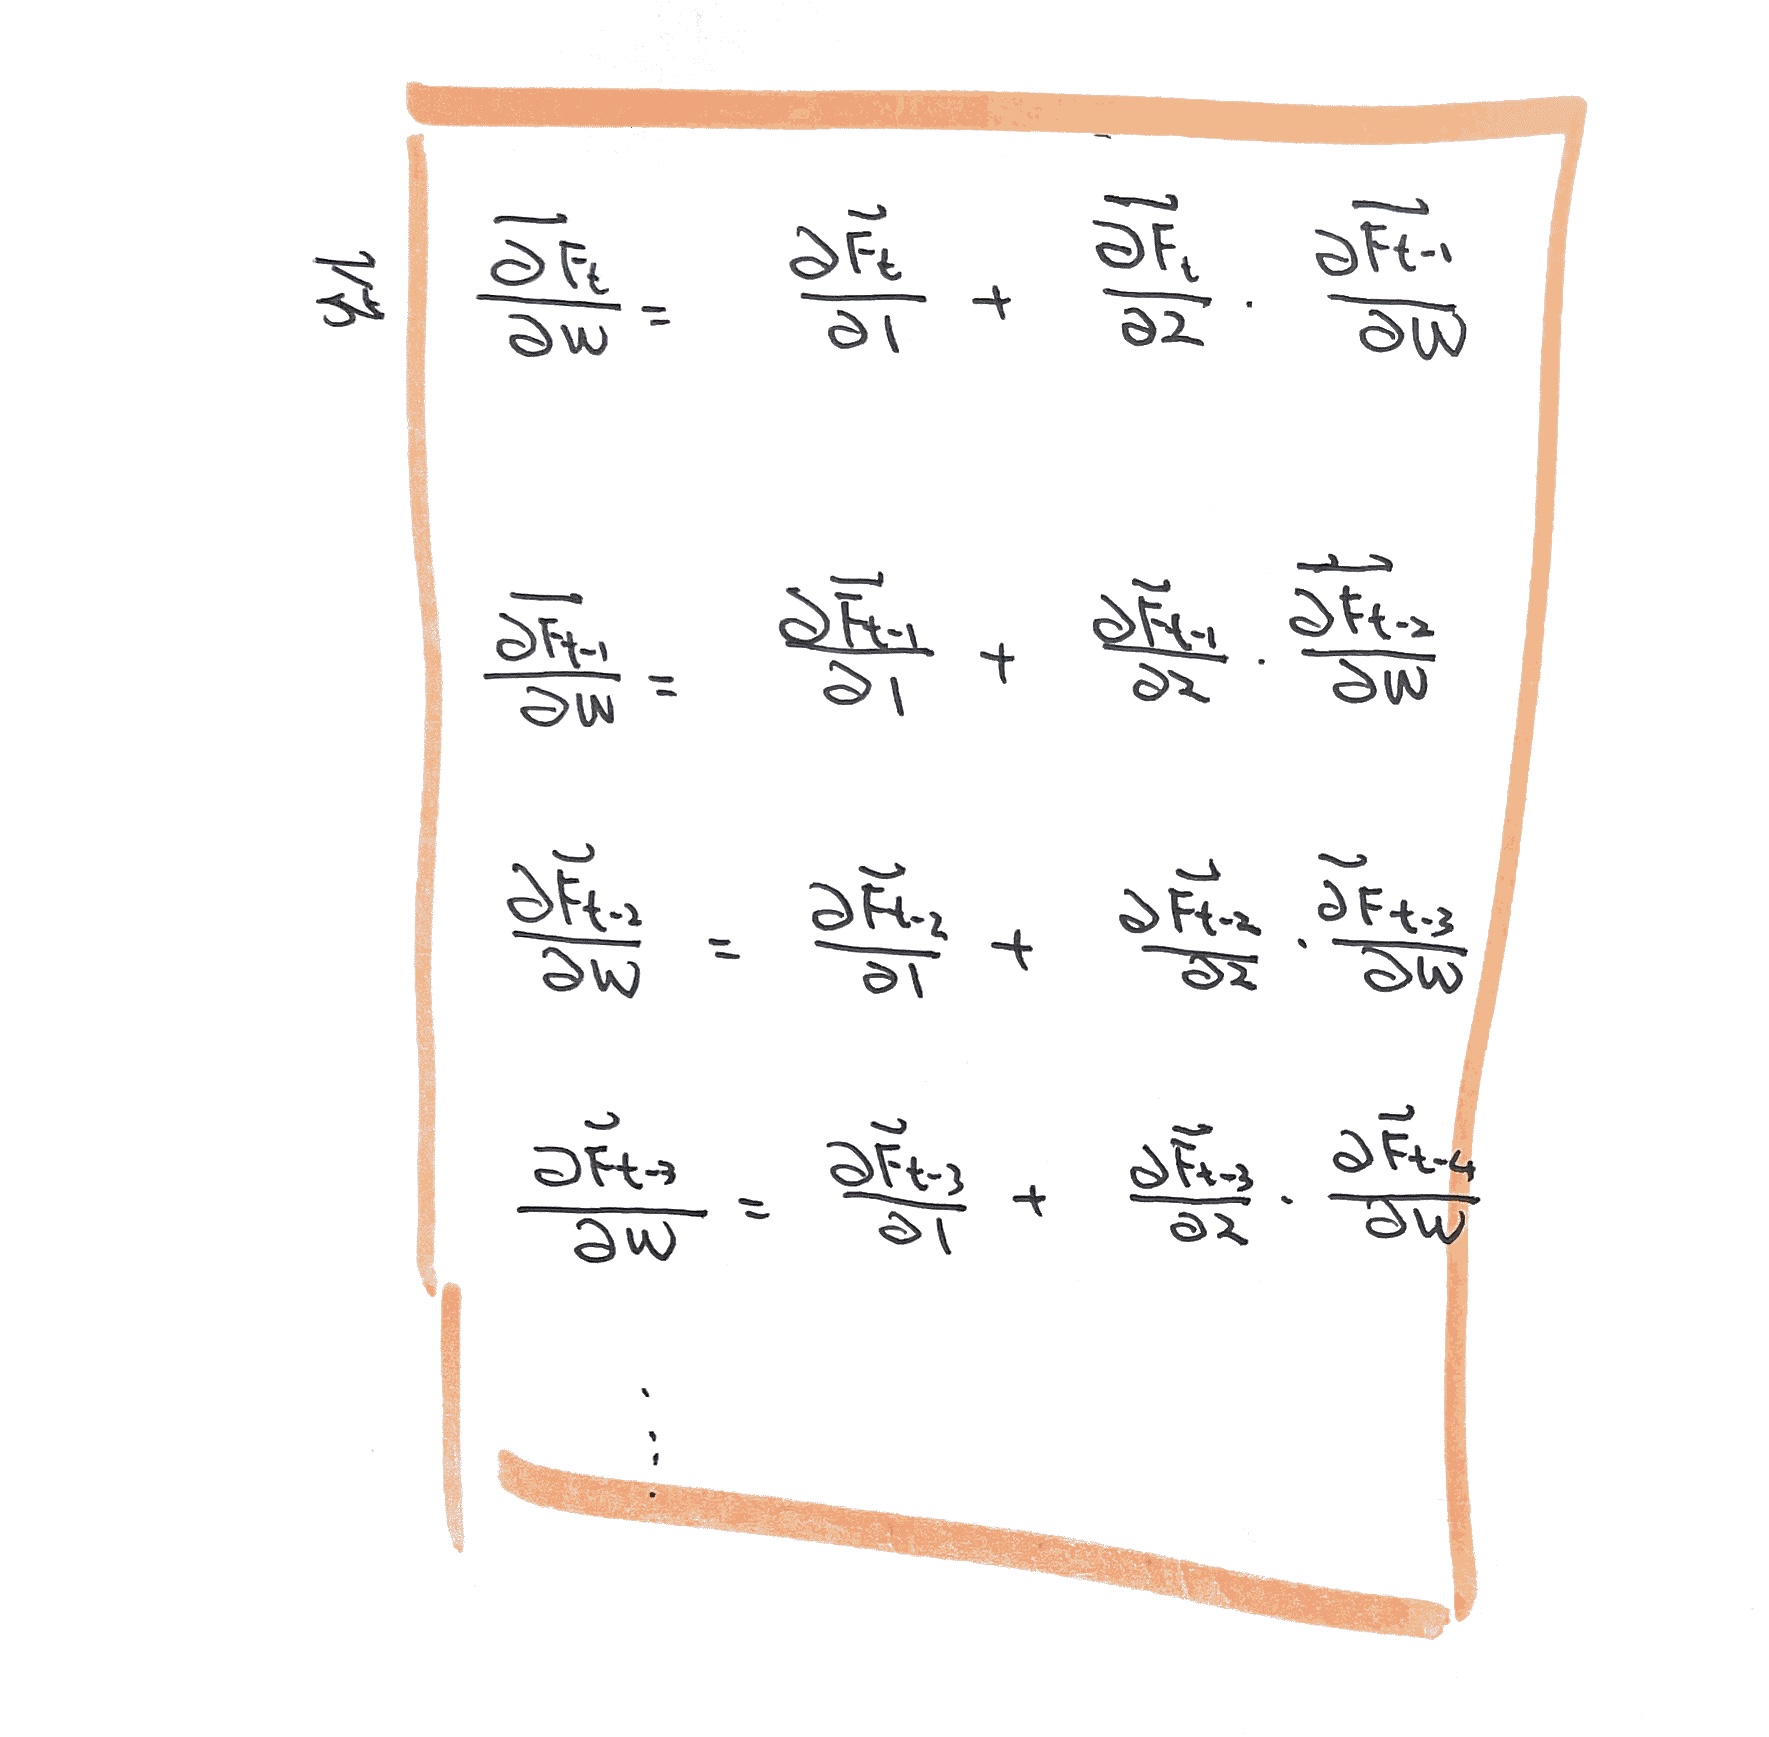 ∂F⃗t/∂W = ∂F⃗t/∂1 + ∂F⃗t/∂2 · ∂F⃗t-1/∂W
∂F⃗t-1/∂W = ∂F⃗t-1/∂1 + ∂F⃗t-1/∂2 · ∂F⃗t-2/∂W
∂F⃗t-2/∂W = ∂F⃗t-2/∂1 + ∂F⃗t-2/∂2 · ∂F⃗t-3/∂W
∂F⃗t-3/∂W = ∂F⃗t-3/∂1 + ∂F⃗t-3/∂2 · ∂F⃗t-4/∂W
⋮